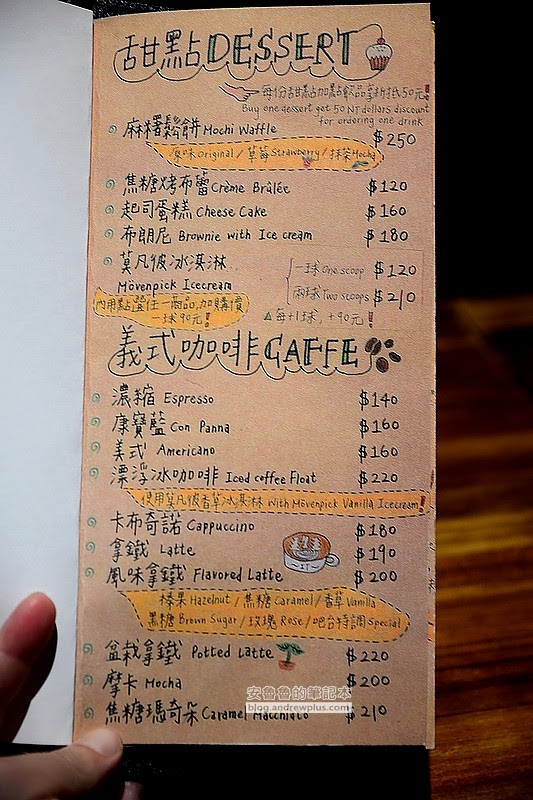 甜點DESSERT
每份甜點加點飲品享折抵50元!
Buy one dessert get 50 NT dollars discount
for ordering one drink
麻糬鬆餅 Mochi Waffle $250
原味 Original / 草莓 Strawberry / 抹茶 Mocha
焦糖烤布蕾 Crème Brûlée $120
起司蛋糕 Cheese Cake $160
布朗尼 Brownie with Ice cream $180
莫凡彼冰淇淋 一球 One scoop $120
Mövenpick Icecream 兩球 Two scoops $210
內用點選任一商品,加購價
一球90元!
▲每+1球,+90元!
義式咖啡CAFFE
濃縮 Espresso $140
康寶藍 Con Panna $160
美式 Americano $160
漂浮冰咖啡 Iced coffee Float $220
使用莫凡彼香草冰淇淋 With Mövenpick Vanilla Icecream!
卡布奇諾 Cappuccino $180
拿鐵 Latte $190
風味拿鐵 Flavored Latte $200
榛果 Hazelnut / 焦糖 Caramel / 香草 Vanilla
黑糖 Brown Sugar / 玫瑰 Rose / 吧台特調 Special
盆栽拿鐵 Potted Latte $220
摩卡 Mocha $200
焦糖瑪奇朵 Caramel Macchiato $210
安魯魯的筆記本
blog.andrewplus.com